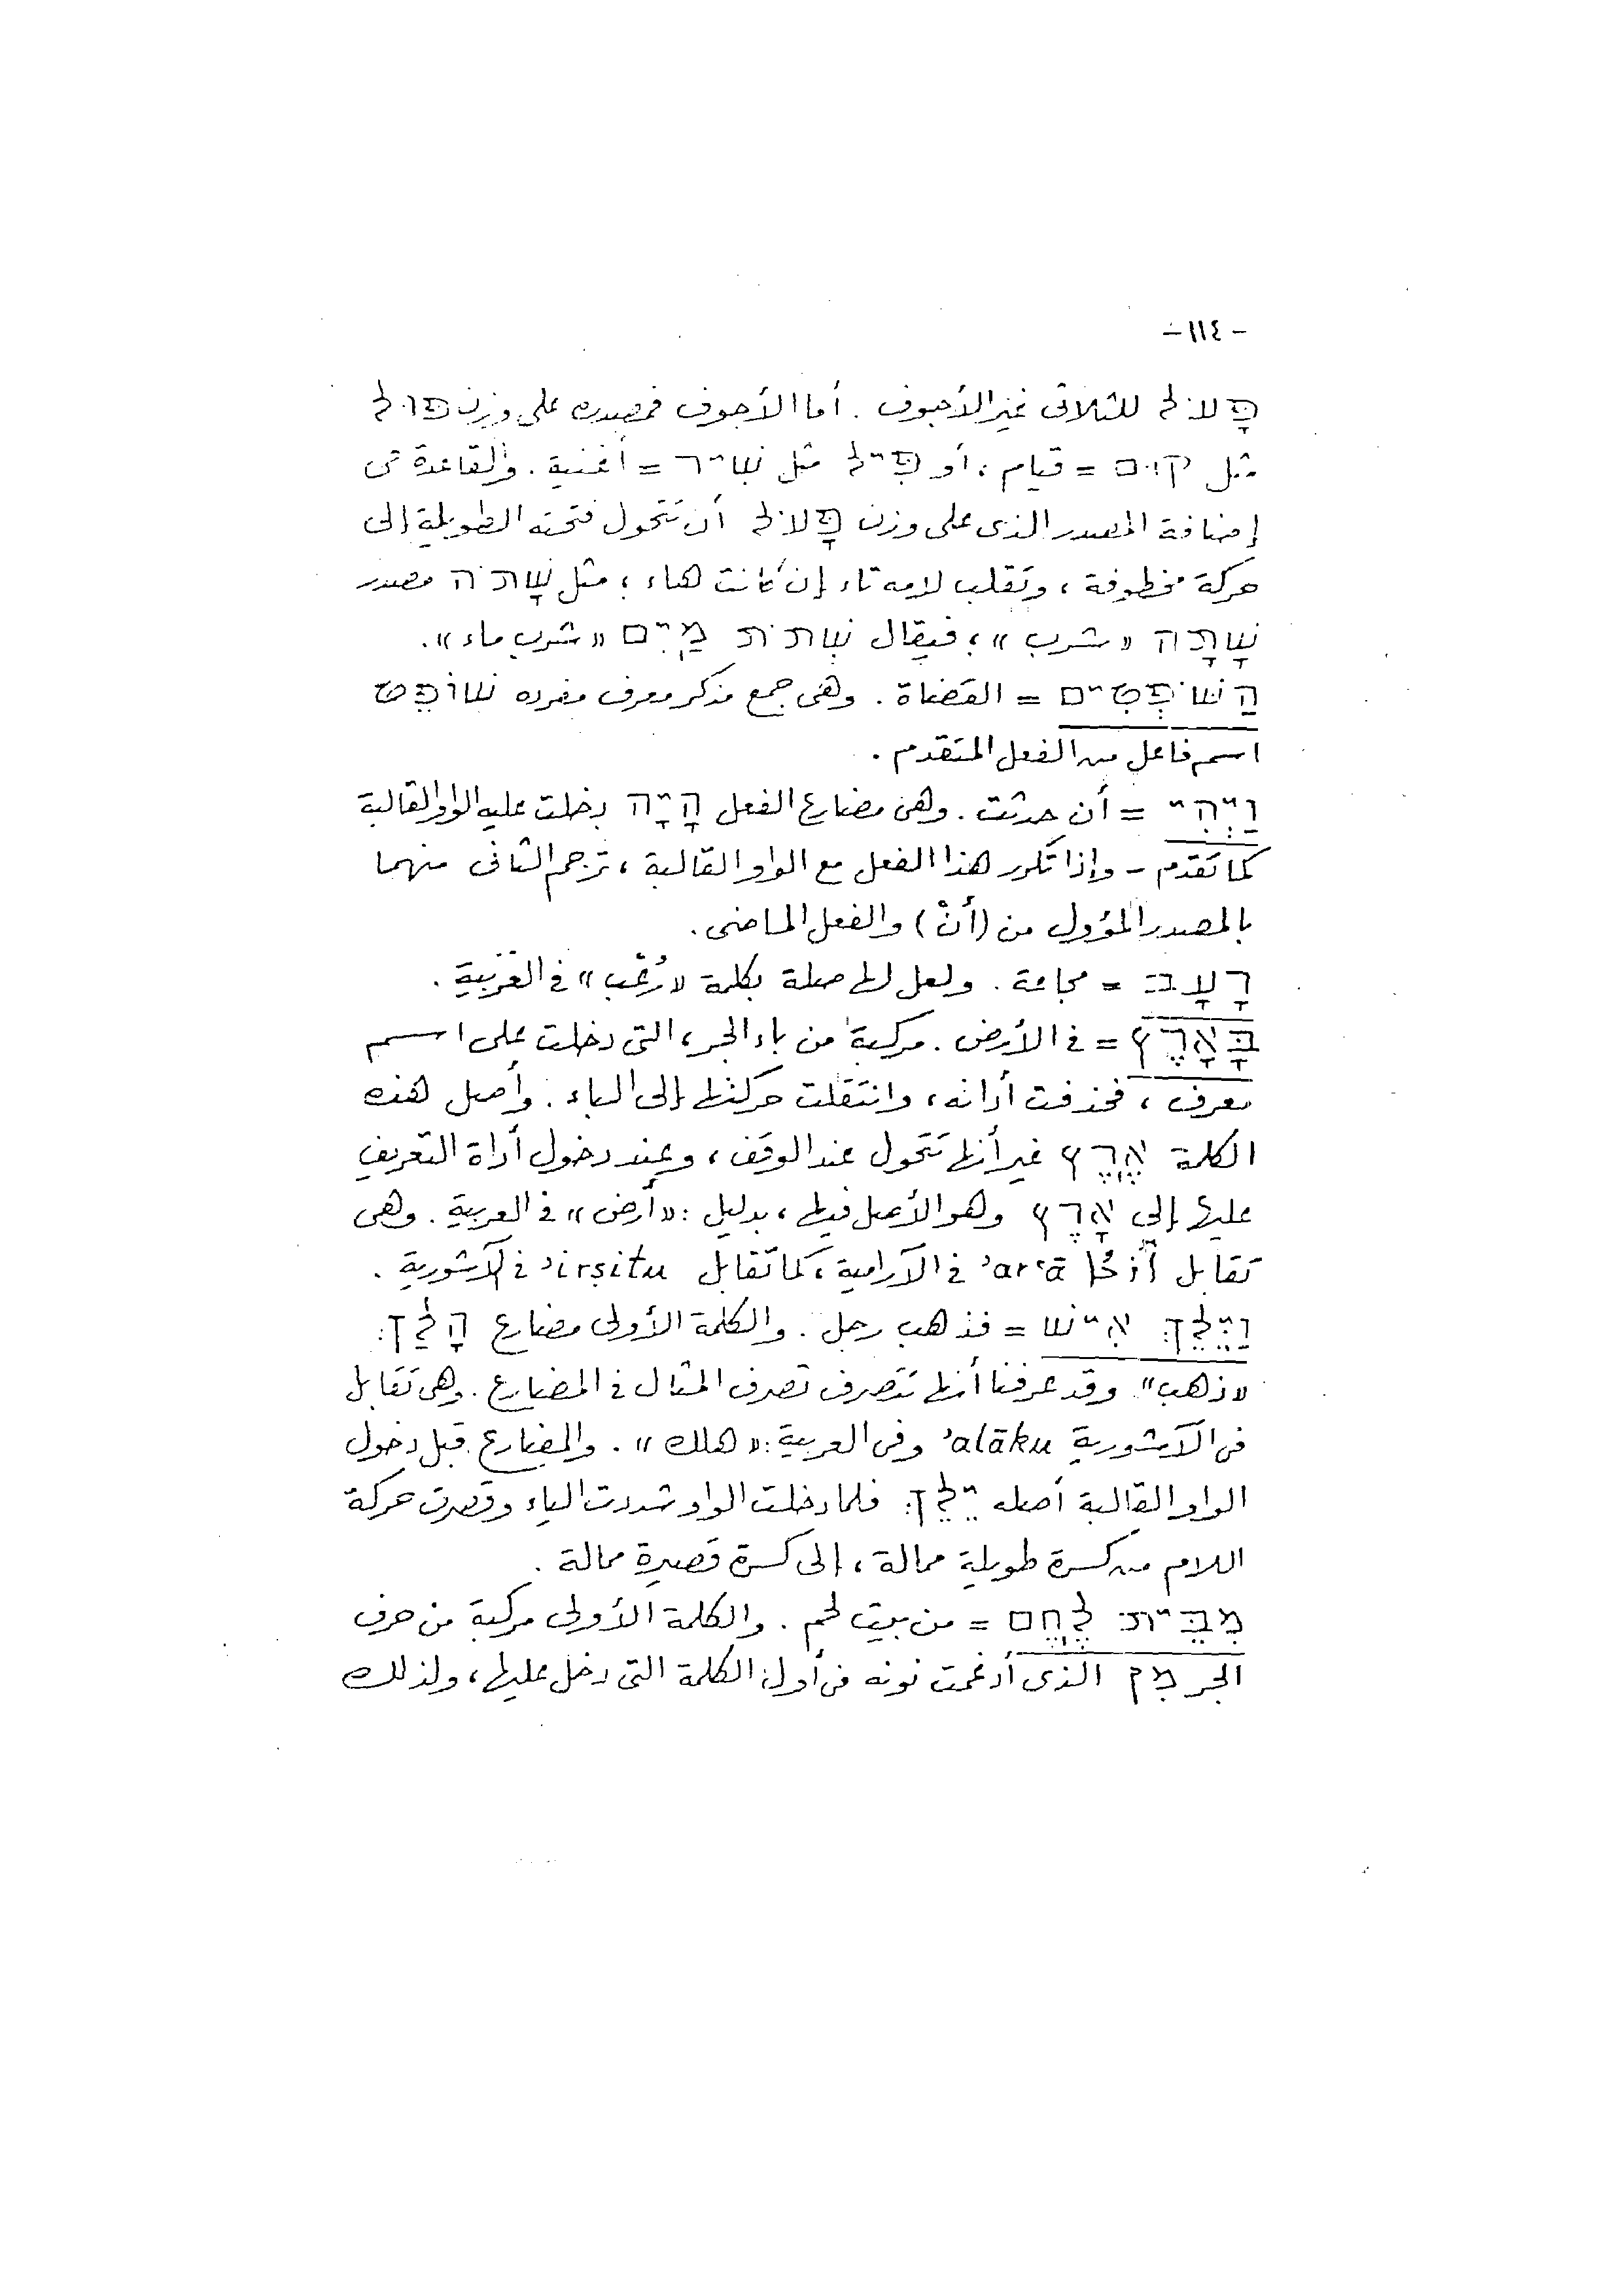 - ١١٤ -
פָּעֹל للثلاثى غير الأجوف . أما الأجوف فمصدره على وزن פוּל
مثل קוּם = قيام ، أو פִּיל مثل שִׁיר = أغنية . والقاعدة فى
إضافة المصدر الذى على وزن פָּעֹל أن تتحول فتحته الطويلة إلى
حركة مخطوفة ، وتقلب لامه تاء إن كانت هاء ؛ مثل שָׁתֹה مصدر
שָׁתָה « شرب » ؛ فيقال שְׁתֹת מַיִם « شرب ماء » .
הַשֹּׁפְטִים = القضاة . وهى جمع مذكر معرف مفرده שׁוֹפֵט
اسم فاعل من الفعل المتقدم .
וַיְהִי = أن حدثت . وهى مضارع الفعل הָיָה دخلت عليه الواو القالبة
كما تقدم – وإذا تكرر هذا الفعل مع الواو القالبة ، ترجم الثانى منهما
بالمصدر المؤول من (أنْ) والفعل الماضى .
רָעָב = مجاعة . ولعل لها صلة بكلمة « رُعْب » فى العربية .
בָּאָרֶץ = فى الأرض . مركبة من باء الجر ، التى دخلت على اسم
معرف ، فحذفت أداته ، وانتقلت حركتها إلى الباء . وأصل هذه
الكلمة אֶרֶץ غير أنها تتحول عند الوقف ، وعند دخول أداة التعريف
عليها إلى אָרֶץ وهو الأصل فيها ، بدليل : « أرض » فى العربية . وهى
تقابل ܐܰܪܥܳܐ ʾarʿā فى الآرامية ، كما تقابل ʾirṣitu فى الآشورية .
וַיֵּלֶךְ אִישׁ = فذهب رجل . والكلمة الأولى مضارع הָלַךְ
« ذهب » وقد عرفنا أنها تتصرف تصرف المثال فى المضارع . وهى تقابل
فى الآشورية ʾalāku وفى العربية : « هلك » . والمضارع قبل دخول
الواو القالبة أصله יֵלֵךְ فلما دخلت الواو شددت الياء وقصرت حركة
اللام من كسرة طويلة ممالة ، إلى كسرة قصيرة ممالة .
מִבֵּית לֶחֶם = من بيت لحم . والكلمة الأولى مركبة من حرف
الجر מִן الذى أدغمت نونه فى أول الكلمة التى دخل عليها ، ولذلك